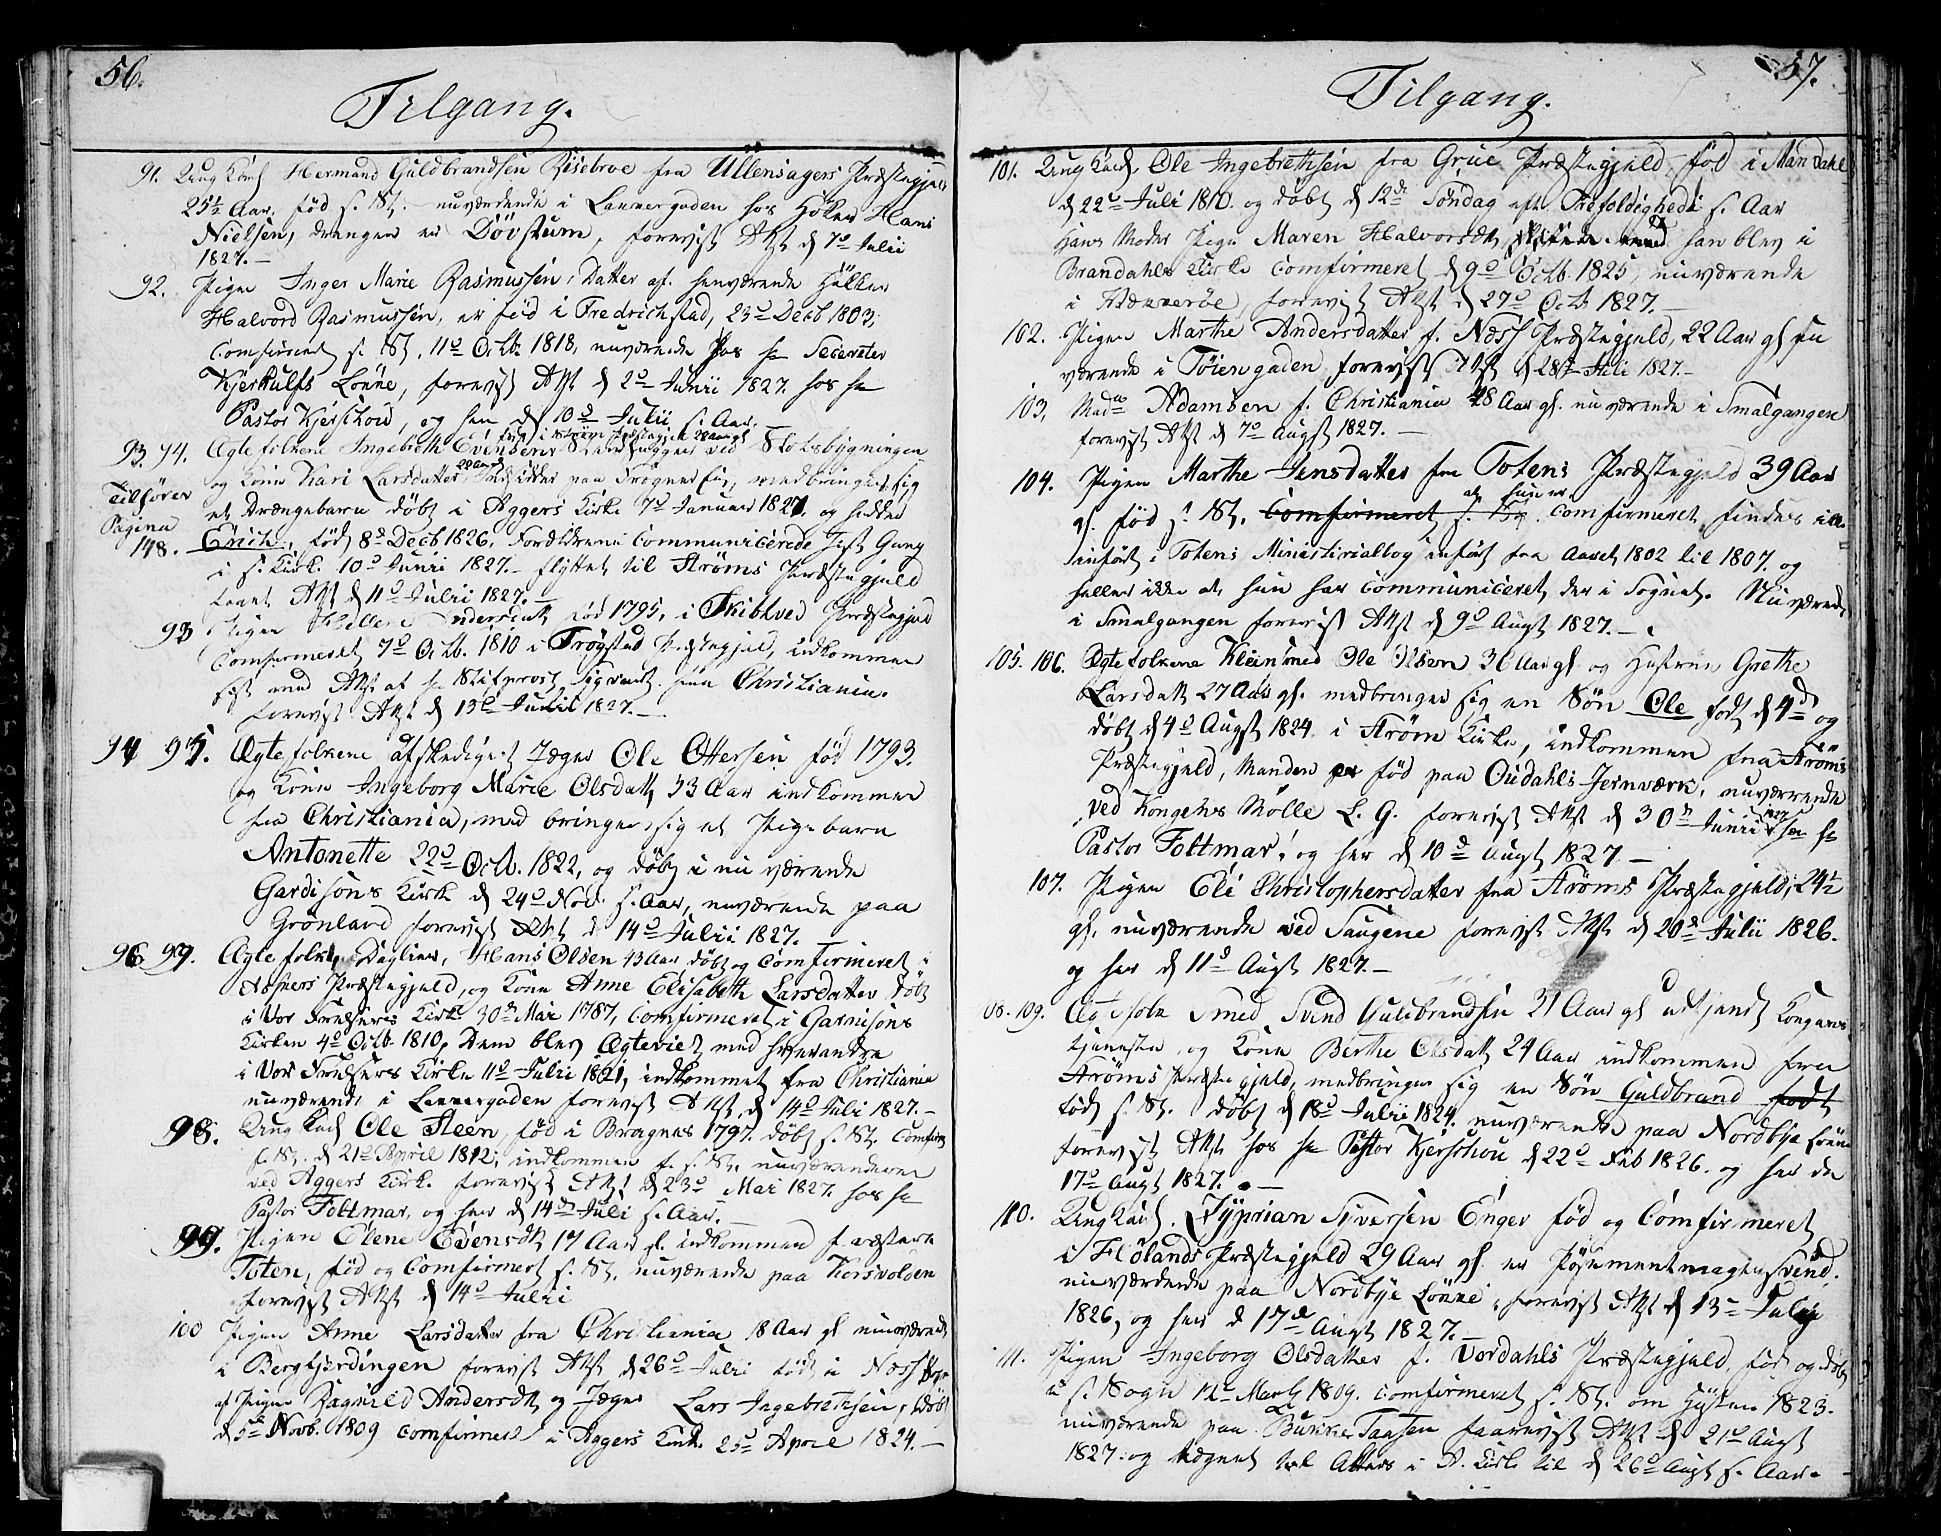 56.
Tilgang.
91. Ung Karl Hermand Guldbrandsen Risebroe fra Ullensagers Præstegjeld
25½ Aar, fød s. St. nuværende i Lakkergaden hos Höker Hans
Nielsen, drengen er Døvstum, forevist Att d 7d Julii
1827.
92. Pigen Inger Marie Rasmussen, Datter af henværende Hökker
Halvord Rasmussen, er fød i Fredrichstad, 23d Decb 1803,
Comfirmert s. St. 11d Octb 1818, nuværende hos hr Secreter
Kjerkulfs Lönne, forevist Att d 2d Junii 1827 hos hr
Pastor Kjerschow, og her d 10d Julii s. Aar.
93. 94. Ægtefolkene Ingebreth Evensen ved Slotsbygningen
og Kone Kari Larsdatter 28 Aar paa medbringer sig
Tilfører
et Drængebarn døbt i Aggers Kirke 7d Januar 1827, og hedder
Pagina
148. Erich, født 8d Decb 1826, Forældrene Communicerede sist Gang
i s. Kirke 10d Junii 1827. flyttet til Strøms Præstegjeld
taget Att d 11d Julii 1827.
93 Pigen Hellene Andersdatt fød 1795, i Skibtved Præstegjeld
Comfirmeret 7d Octb. 1810 i Trøgstad Præstegjeld, indkommen
sist med Att af hr Stiftprovst Sigvardt fra Christiania.
forevist Att d 13d Julii 1827.
94 95. Ægtefolkene afskediget Jæger Ole Ottersen fød 1793.
og Kone Ingeborg Marie Olsdatt, 33 Aar indkommen
fra Christiania, med bringer sig et Pigebarn
Antonette 22d Octb. 1822, og døbt i nu værende
Gardisons Kirke d 24d Nov. s. Aar, nuværende paa
Grønland forevist Att d 14d Julii 1827.
96 97. Ægtefolk, Daglier, Hans Olsen 43 Aar døbt og Comfirmeret i
Præstegjeld, og Kone Anne Elisabeth Larsdatter døbt
i Vor Frelsers Kirke 30d Mai 1787, Comfirmeret i Garnisons
Kirken 4d Octb. 1810, Dem blev Ægteviet med hverandre
i Vor Frelsers Kirke 11d Julii 1821, indkommet fra Christiania
nuværende i Lakkergaden forevist Att d 14d Juli 1827.
98. Ung Karl Ole Steen, fød i Bragnæs 1797. døbt s. St. Comfirm
s. St. d 21d April 1812, indkommen f. s. St. nuværende
ved Aggers Kirke forevist Att d 23d Mai 1827. hos hr
Pastor Feltmar, og her d 14d Juli s. Aar.
99. Pigen Elene Evensdtr 17 Aar gl. indkommen f. væstere
Toten, fød og Comfirmert s. St. nuværende paa Korsvolden
forevist Att d 14d Julii
100 Pigen Anne Larsdatter fra Christiania 18 Aar gl nuværende
i Bergfjerdingen forevist Att d 26d Julii født i Næss
af Pigen Ragnild Andersdtr og Jæger Lars Ingebrethsen, døbt
d 5d Novb. 1809 Comfirmert i Aggers Kirke 25d April 1824.
57.
Tilgang.
101. Ung Karl, Ole Ingebrethsen fra Grue Præstegjeld, fød i Mandahl
d 22d Juli 1810. og døbt d 12d Søndag eft. Trefoldighed i s. Aar
Hans Moder Pigen Maren Halvorsdtr, han blev i
Brandahls Kirke Comfirmeret d 9d Octb. 1825, nuværende
i forevist Att d 27d Octb 1827.
102. Pigen Marthe Andersdatter f. Næss Præstegjeld, 22 Aar gl nu
værende i Töiengaden forevist Att d 28d Juli 1827.
103, Mad Adamsen f. Christiania 48 Aar gl. nuværende i Smalgangen
forevist Att d 7d Augst 1827.
104. Pigen Marthe Jensdatter fra Totens Præstegjeld 39 Aar
gl. fød s. St. Comfirmeret s. St. at hun er comfirmeret findes ikke
indført i Totens Ministerialbog indført fra Aaret 1802 til 1807. og
heller ikke at hun har Communiceret der i Sognet. Nuværende
i Smalgangen forevist Att d 9d Augst 1827.
105. 106. Ægtefolkene Kleinsmed Ole Olsen 30 Aar gl. og Hustrue Grethe
Larsdatt 27 Aar gl. medbringer sig en Søn Ole født d 4d og
døbt d 4d Augst 1824 i Strøm Kirke, indkommen fra Strøms
Præstegjeld, Manden er fød paa Oudahls Jernværk, nuværende
ved Kongens Mölle L. G. forevist Att d 30d Junii 1827 hos hr
Pastor Feltmar, og her d 10d Augst 1827.
107. Pigen Eli Christophersdatter fra Strøms Præstegjeld, 24½
gl. nuværende ved Saugene forevist Att d 20d Julii 1826.
og her d 11d Augst 1827.
08. 109. Ægtefolk Smed Svend Guldbrandsen 31 Aar gl udtjendt Kongens
tjeneste, og Kone Berthe Olsdatt 24 Aar indkommen fra
Strøms Præstegjeld, medbringer sig en Søn Guldbrand født
født s. St. døbt d 18d Julii 1824. nuværende paa Nordbye Lönne
forevist Att hos hr Pastor Kjerschou d 22d Feb 1826. og her den
17d Augst 1827.
110. Ung Karl. Zyprian Syversen Enger fød og Comfirmeret
i Hølands Præstegjeld 29 Aar gl er Posementmagersvend.
nuværende paa Nordbye Lönne, forevist Att d 13d Julij
1826, og her d 17d Augst 1827.
111. Pigen Ingeborg Olsdatter f. Vordahls Præstegjeld, fød og døbt
i s. Sogn 12d Marts 1809. Comfirmeret s. St. om Høsten 1823.
nuværende paa Bukke Taasen foreevist Att d 21d Augst
1827. og tegnet til Alters i A. Kirke til d 26d Augst s. Aar.